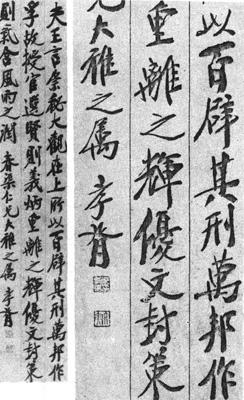 以百辟其刑萬邦作
重離之輝優文封策
兄大雅之属 孝胥
夫王言崇秘大觀在上所以百辟其刑萬邦作
孚故授官選賢則義炳重離之輝優文封策
則氣含風雨之潤 春渠仁兄大雅之属 孝胥